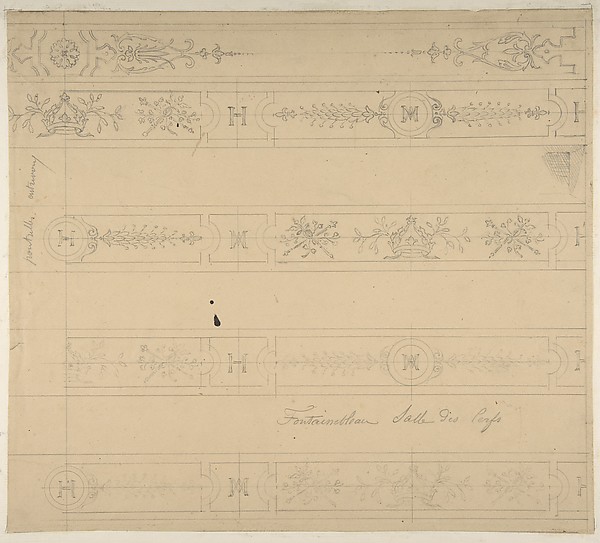 H M H
H M H
H M H
Fontainebleau Salle des Cerfs
H M H